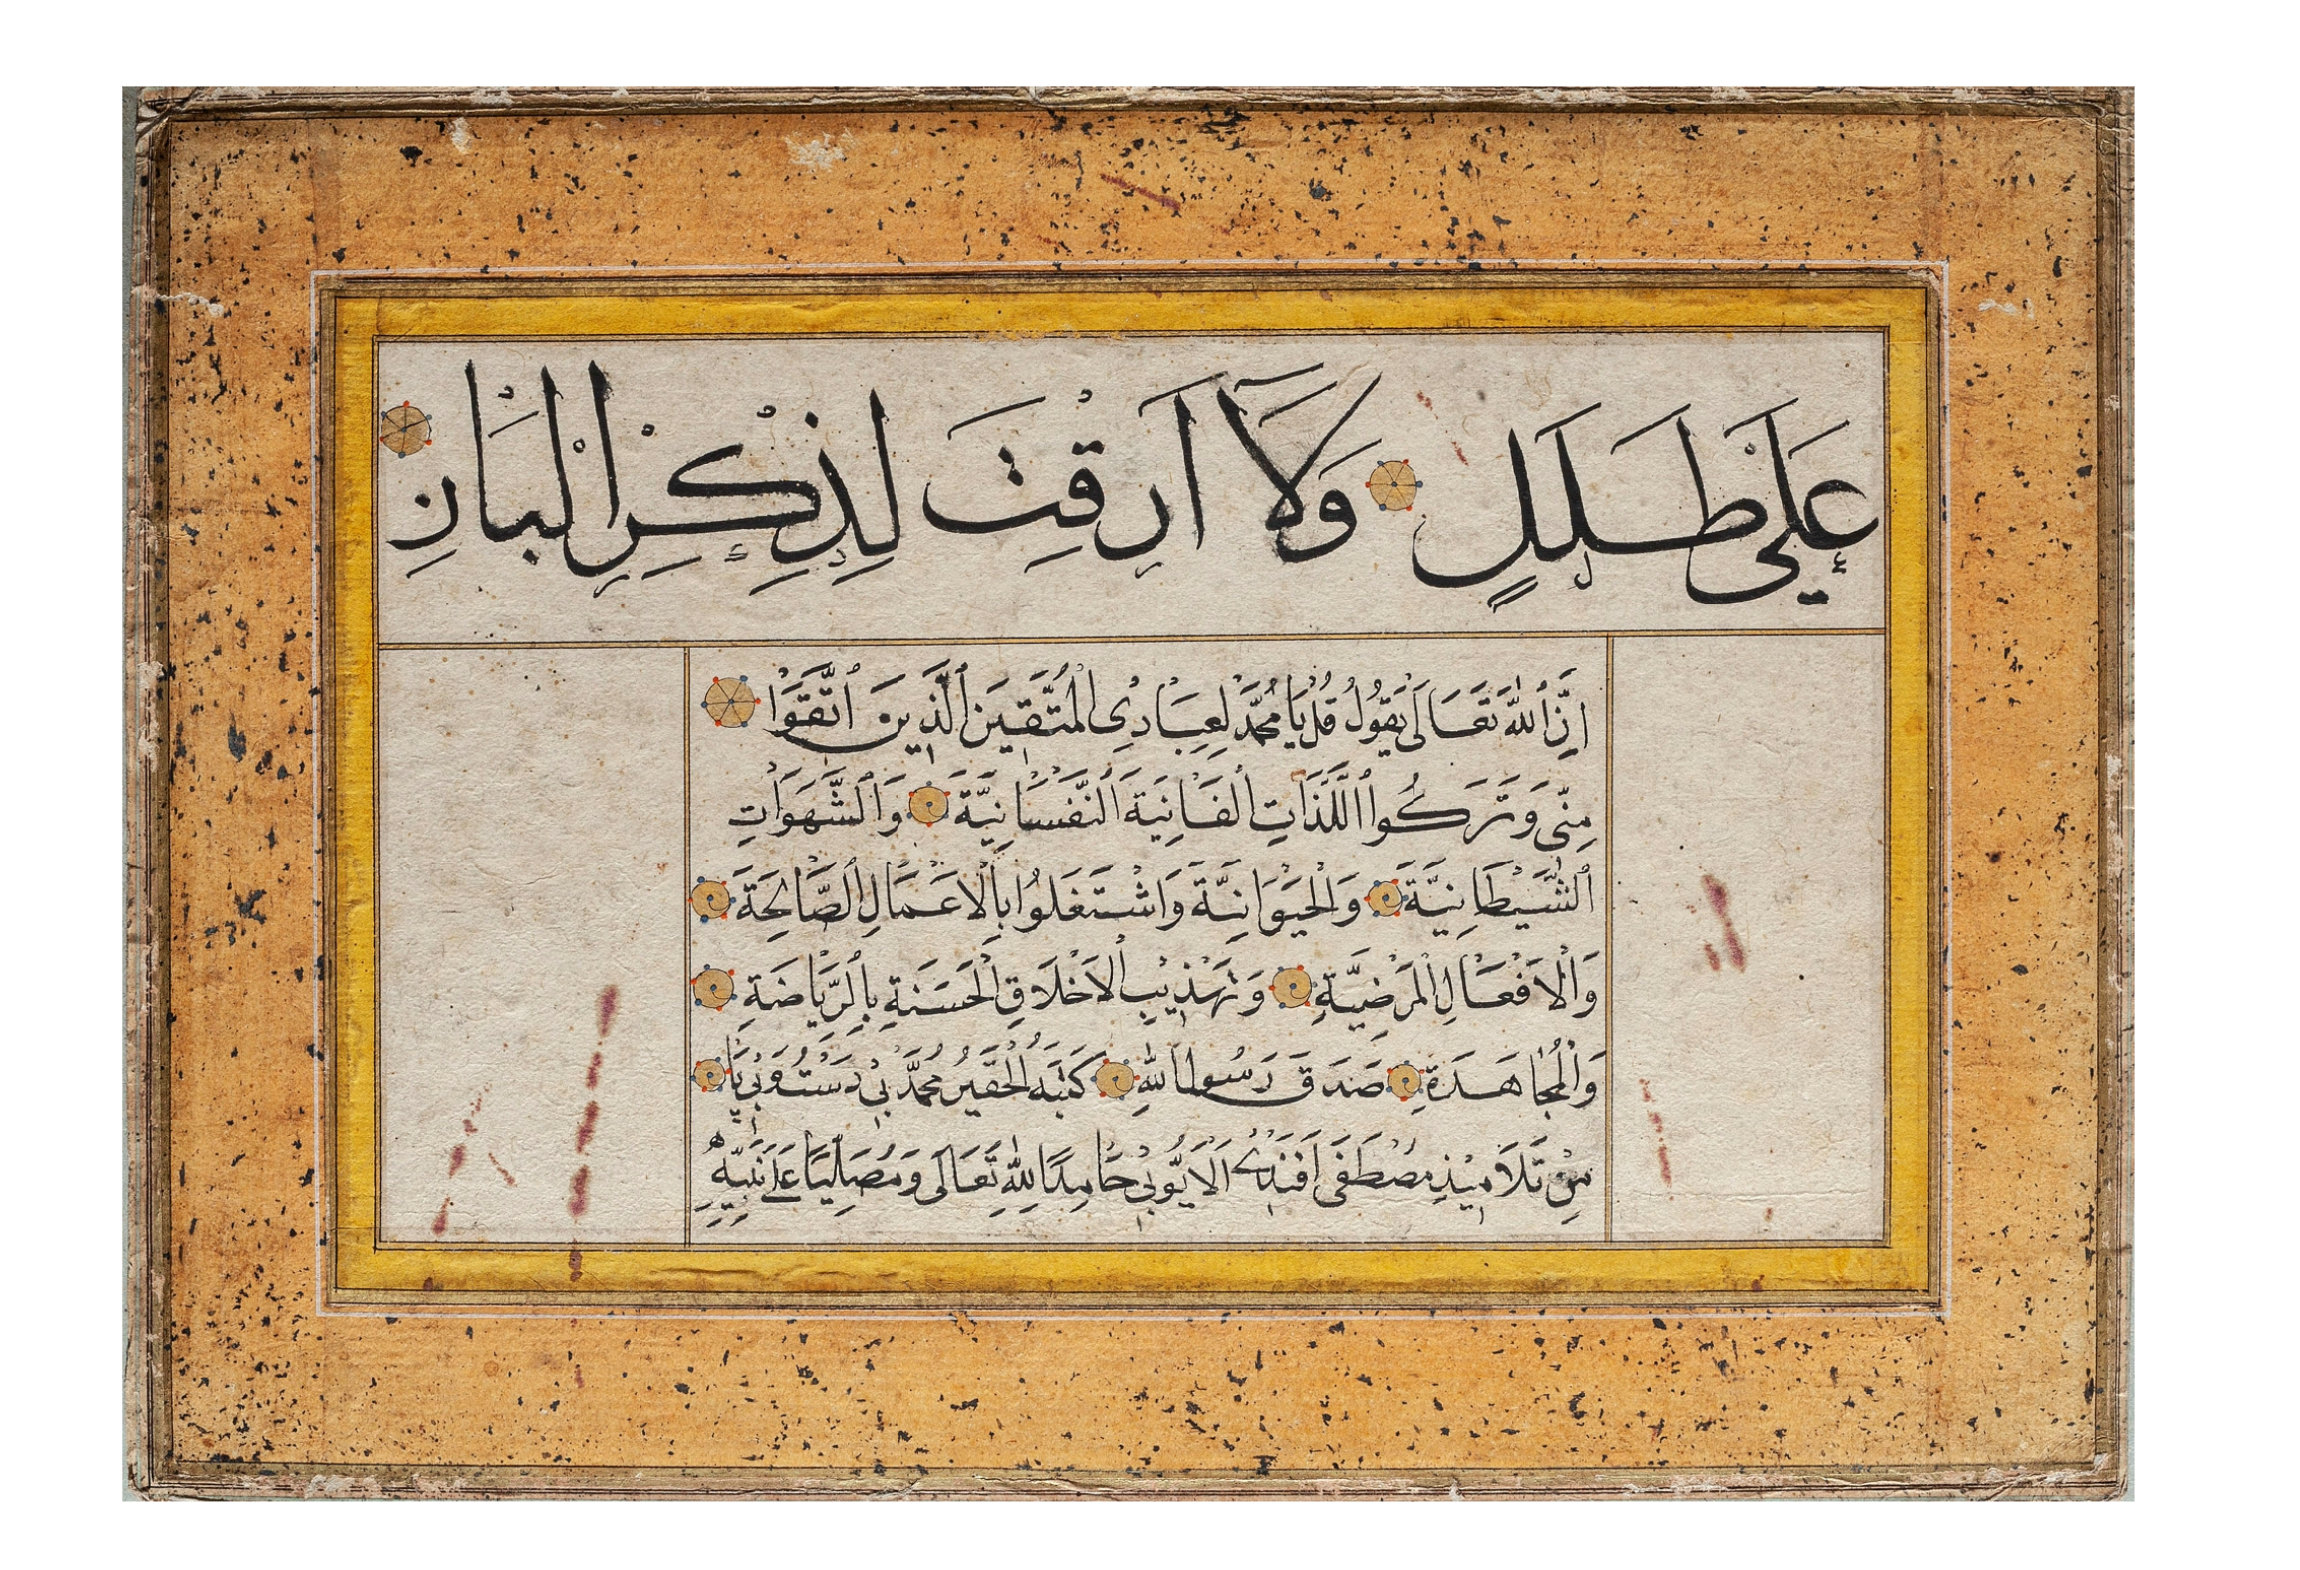 عَلَىٰ طَلَلٍ وَلَا اَرِقْتَ لِذِكْرِ الْبَانِ
اِنَّ ٱللّٰهَ تَعَالَى يَقُولُ قُلْ يَا مُحَمَّدُ لِعِبَادِى الْمُتَّقِينَ ٱلَّذِينَ ٱتَّقَوْا
مِنِّى وَتَرَكُوا اللَّذَّاتِ الْفَانِيَةَ ٱلنَّفْسَانِيَّةَ وَٱلشَّهَوَاتِ
ٱلشَّيْطَانِيَّةَ وَالْحَيَوَانِيَّةَ وَاشْتَغَلُوا بِالْاَعْمَالِ ٱلصَّالِحَةِ
وَالْاَفْعَالِ الْمَرْضِيَّةِ وَتَهْذِيبِ الْاَخْلَاقِ الْحَسَنَةِ بِٱلرِّيَاضَةِ
وَالْمُجَاهَدَةِ صَدَقَ رَسُولُ اللّٰهِ كَتَبَهُ الْحَقِيرُ مُحَمَّدْ
مِنْ تَلَامِيذِ مُصْطَفَى اَفَنْدِى اَلْاَيُّوبِى حَامِدًا لِلّٰهِ تَعَالَى وَمُصَلِّيًا عَلَى نَبِيِّهِ